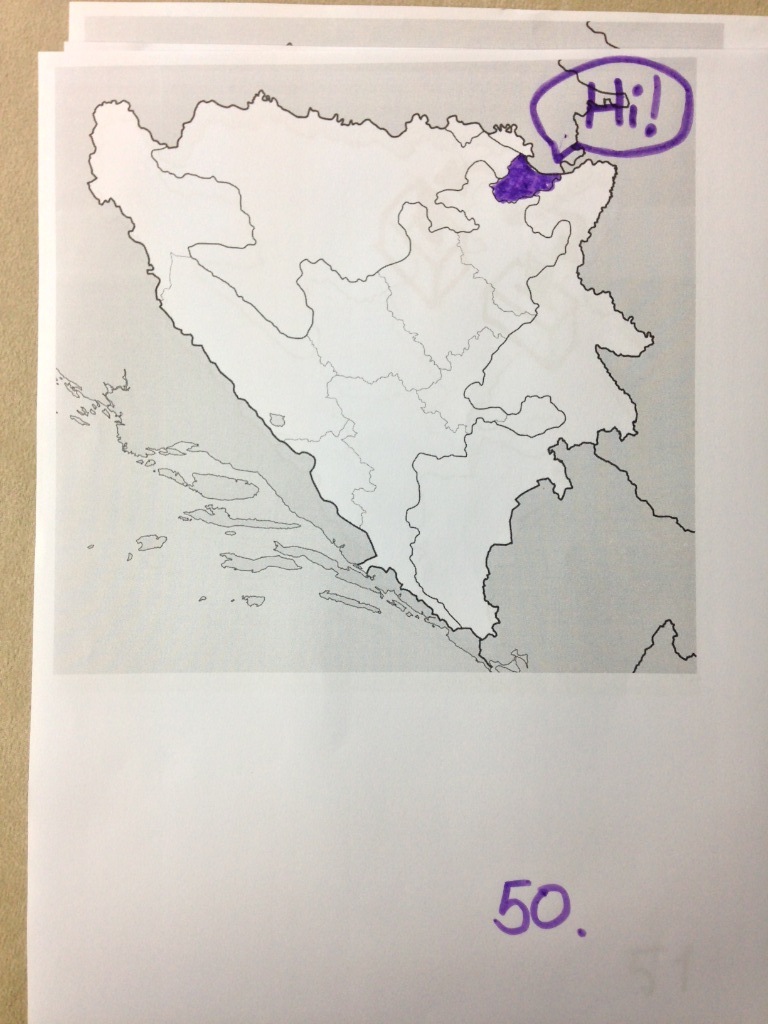 Hi!
50.
51